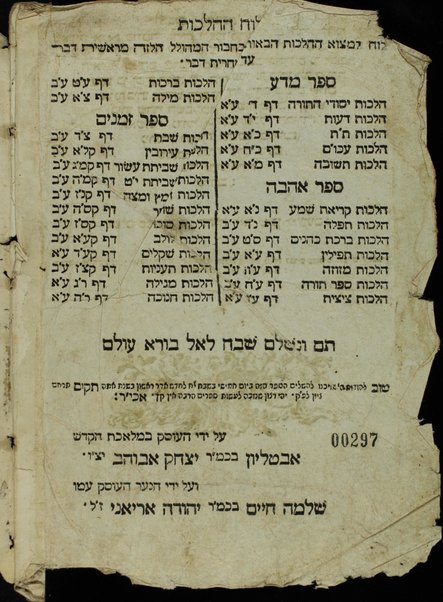 לוח ההלכות
לוח ימצוא ההלכות הבאות בחבור המהולל הלזה מראשית דבר
עד אחרית דבר
ספר מדע
הלכות יסודי התורה דף ד' ע"א
הלכות דעות דף י"ד ע"א
הלכות ת"ת דף כ"א ע"א
הלכות עכו"ם דף כ"ח ע"א
הלכות תשובה דף מ"א ע"א
ספר אהבה
הלכות קריאת שמע דף נ"א ע"א
הלכות תפלה דף נ"ד ע"ב
הלכות ברכת כהנים דף ס"ט ע"ב
הלכות תפילין דף ע"א ע"א
הלכות מזוזה דף ע"ב
הלכות ספר תורה דף ע"ב
הלכות ציצית דף ע"א
הלכות ברכות דף ע"ט ע"ב
הלכות מילה דף צ"א ע"ב
ספר זמנים
הלכות שבת דף צ"ד ע"ב
הלכות עירובין דף קל"א ע"ב
הלכות שביתת עשור דף קמ"ג ע"ב
הלכות שביתת י"ט דף קמ"ה ע"ב
הלכות חמץ ומצה דף קנ"ז ע"ב
הלכות שופר דף קס"ה ע"ב
הלכות סוכה דף קס"ז ע"ב
הלכות לולב דף קע"א ע"ב
הלכות שקלים דף קע"ד ע"א
הלכות תעניות דף קצ"ז ע"ב
הלכות מגילה דף ר"ג ע"א
הלכות חנוכה דף ר"ה ע"א
תם ונשלם שבח לאל בורא עולם
להשלים הספר הזה ביום חמישי בשבת לחדש אדר ראשון בשנת תקום
לפ"ק יהי רצון שנזכה לעשות ספרים הרבה אין קץ אכי"ר:
על ידי העוסק במלאכת הקדש
00297
אבטליון בכמ"ר יצחק אבוהב יצ"ו
ועל ידי הנער העוסק עמו
שלמה חיים בכמ"ר יהודה אריאני ז"ל